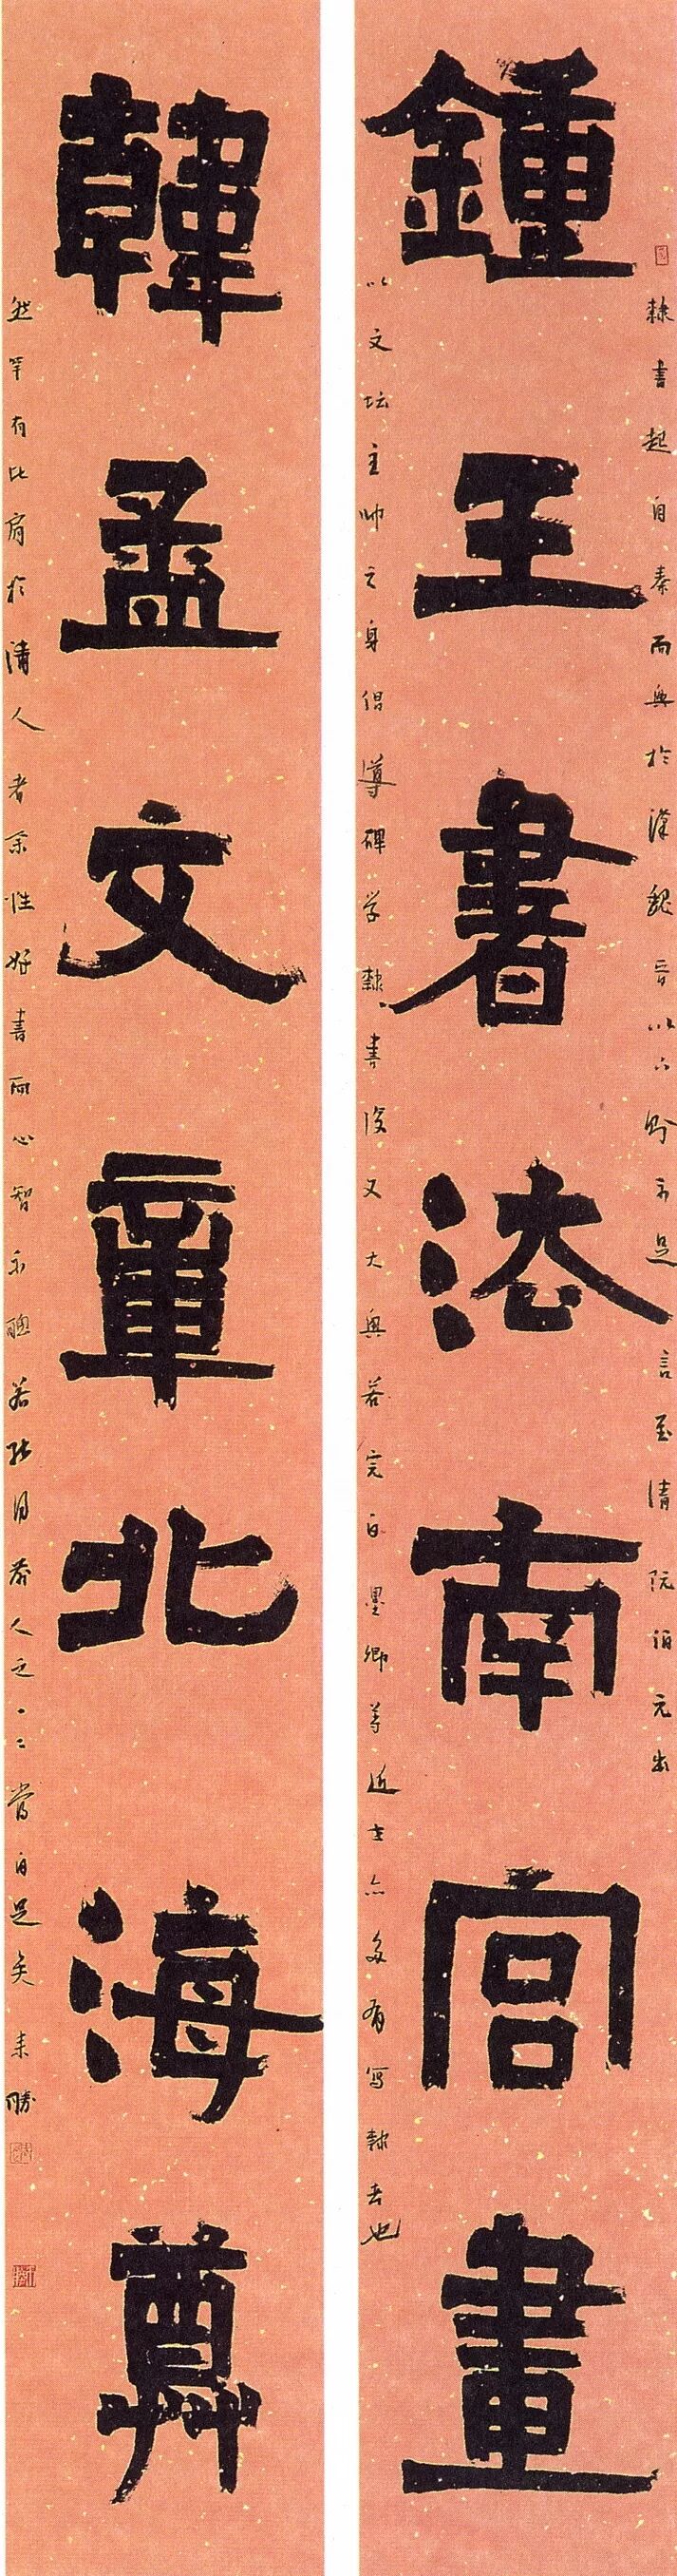 隸書起自秦而興於漢魏晋以六朝不足言至清阮伯元出
鍾王書法南宫畫
以文坛主帅之身倡導碑学隸書後又大興若完白墨卿等近世亦多有写隸者也
韓孟文章北海尊
然罕有比肩於清人者余性好書而心智不聰若能得前人之一二當自足矣